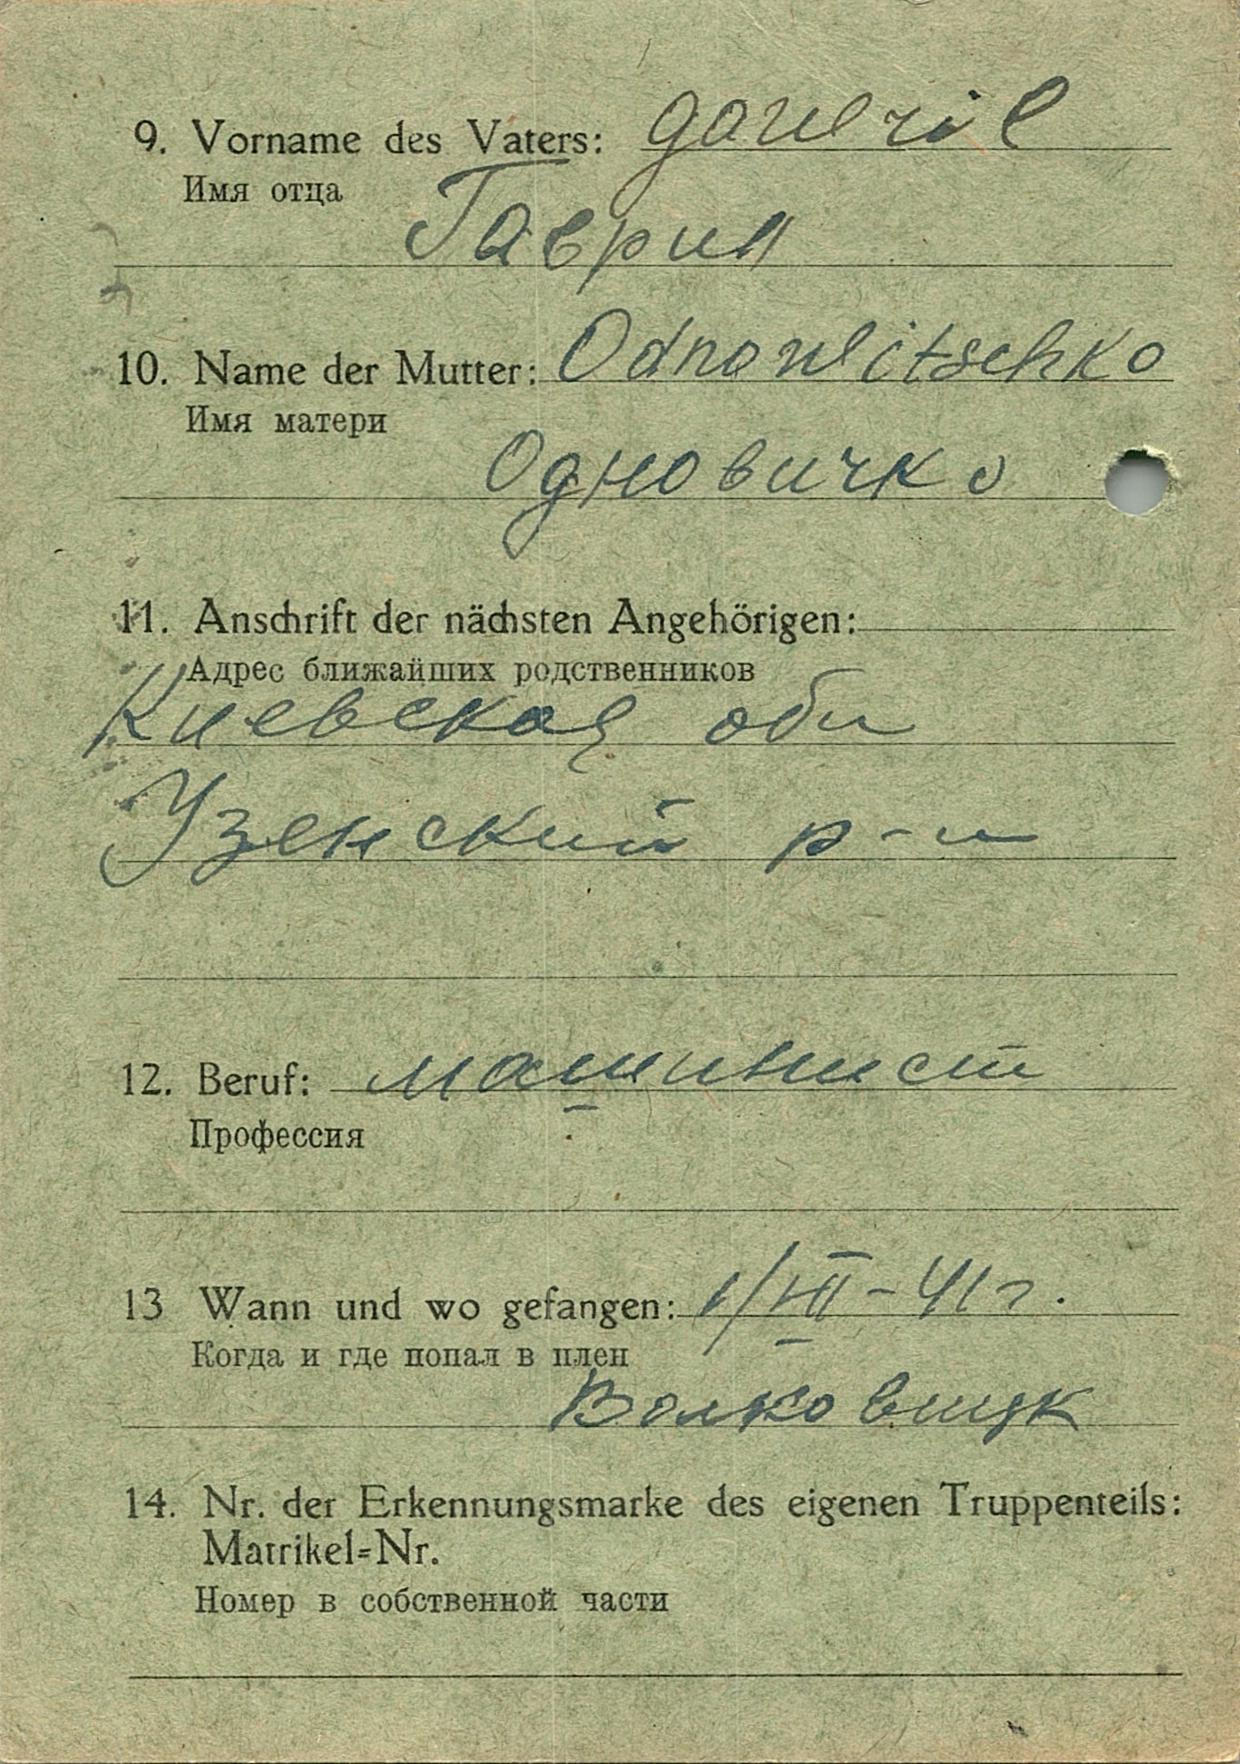 9. Vorname des Vaters: gawril
Имя отца
Гаврил
10. Name der Mutter: Odnowitschko
Имя матери
Одновичко
11. Anschrift der nächsten Angehörigen:
Адрес ближайших родственников
Киевская обл
Узенский р-н
12. Beruf: машинист
Профессия
13 Wann und wo gefangen: 1/VII-41г.
Когда и где попал в плен
Волковицк
14. Nr. der Erkennungsmarke des eigenen Truppenteils:
Matrikel=Nr.
Номер в собственной части